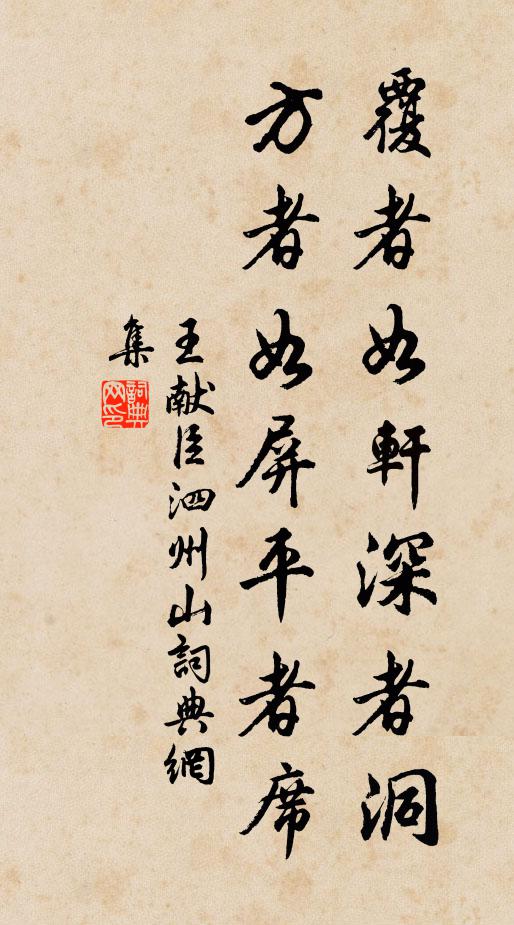 覆者如軒深者洞
方者如屏平者席
王献臣泗州山詞典網
集
詞典
网印